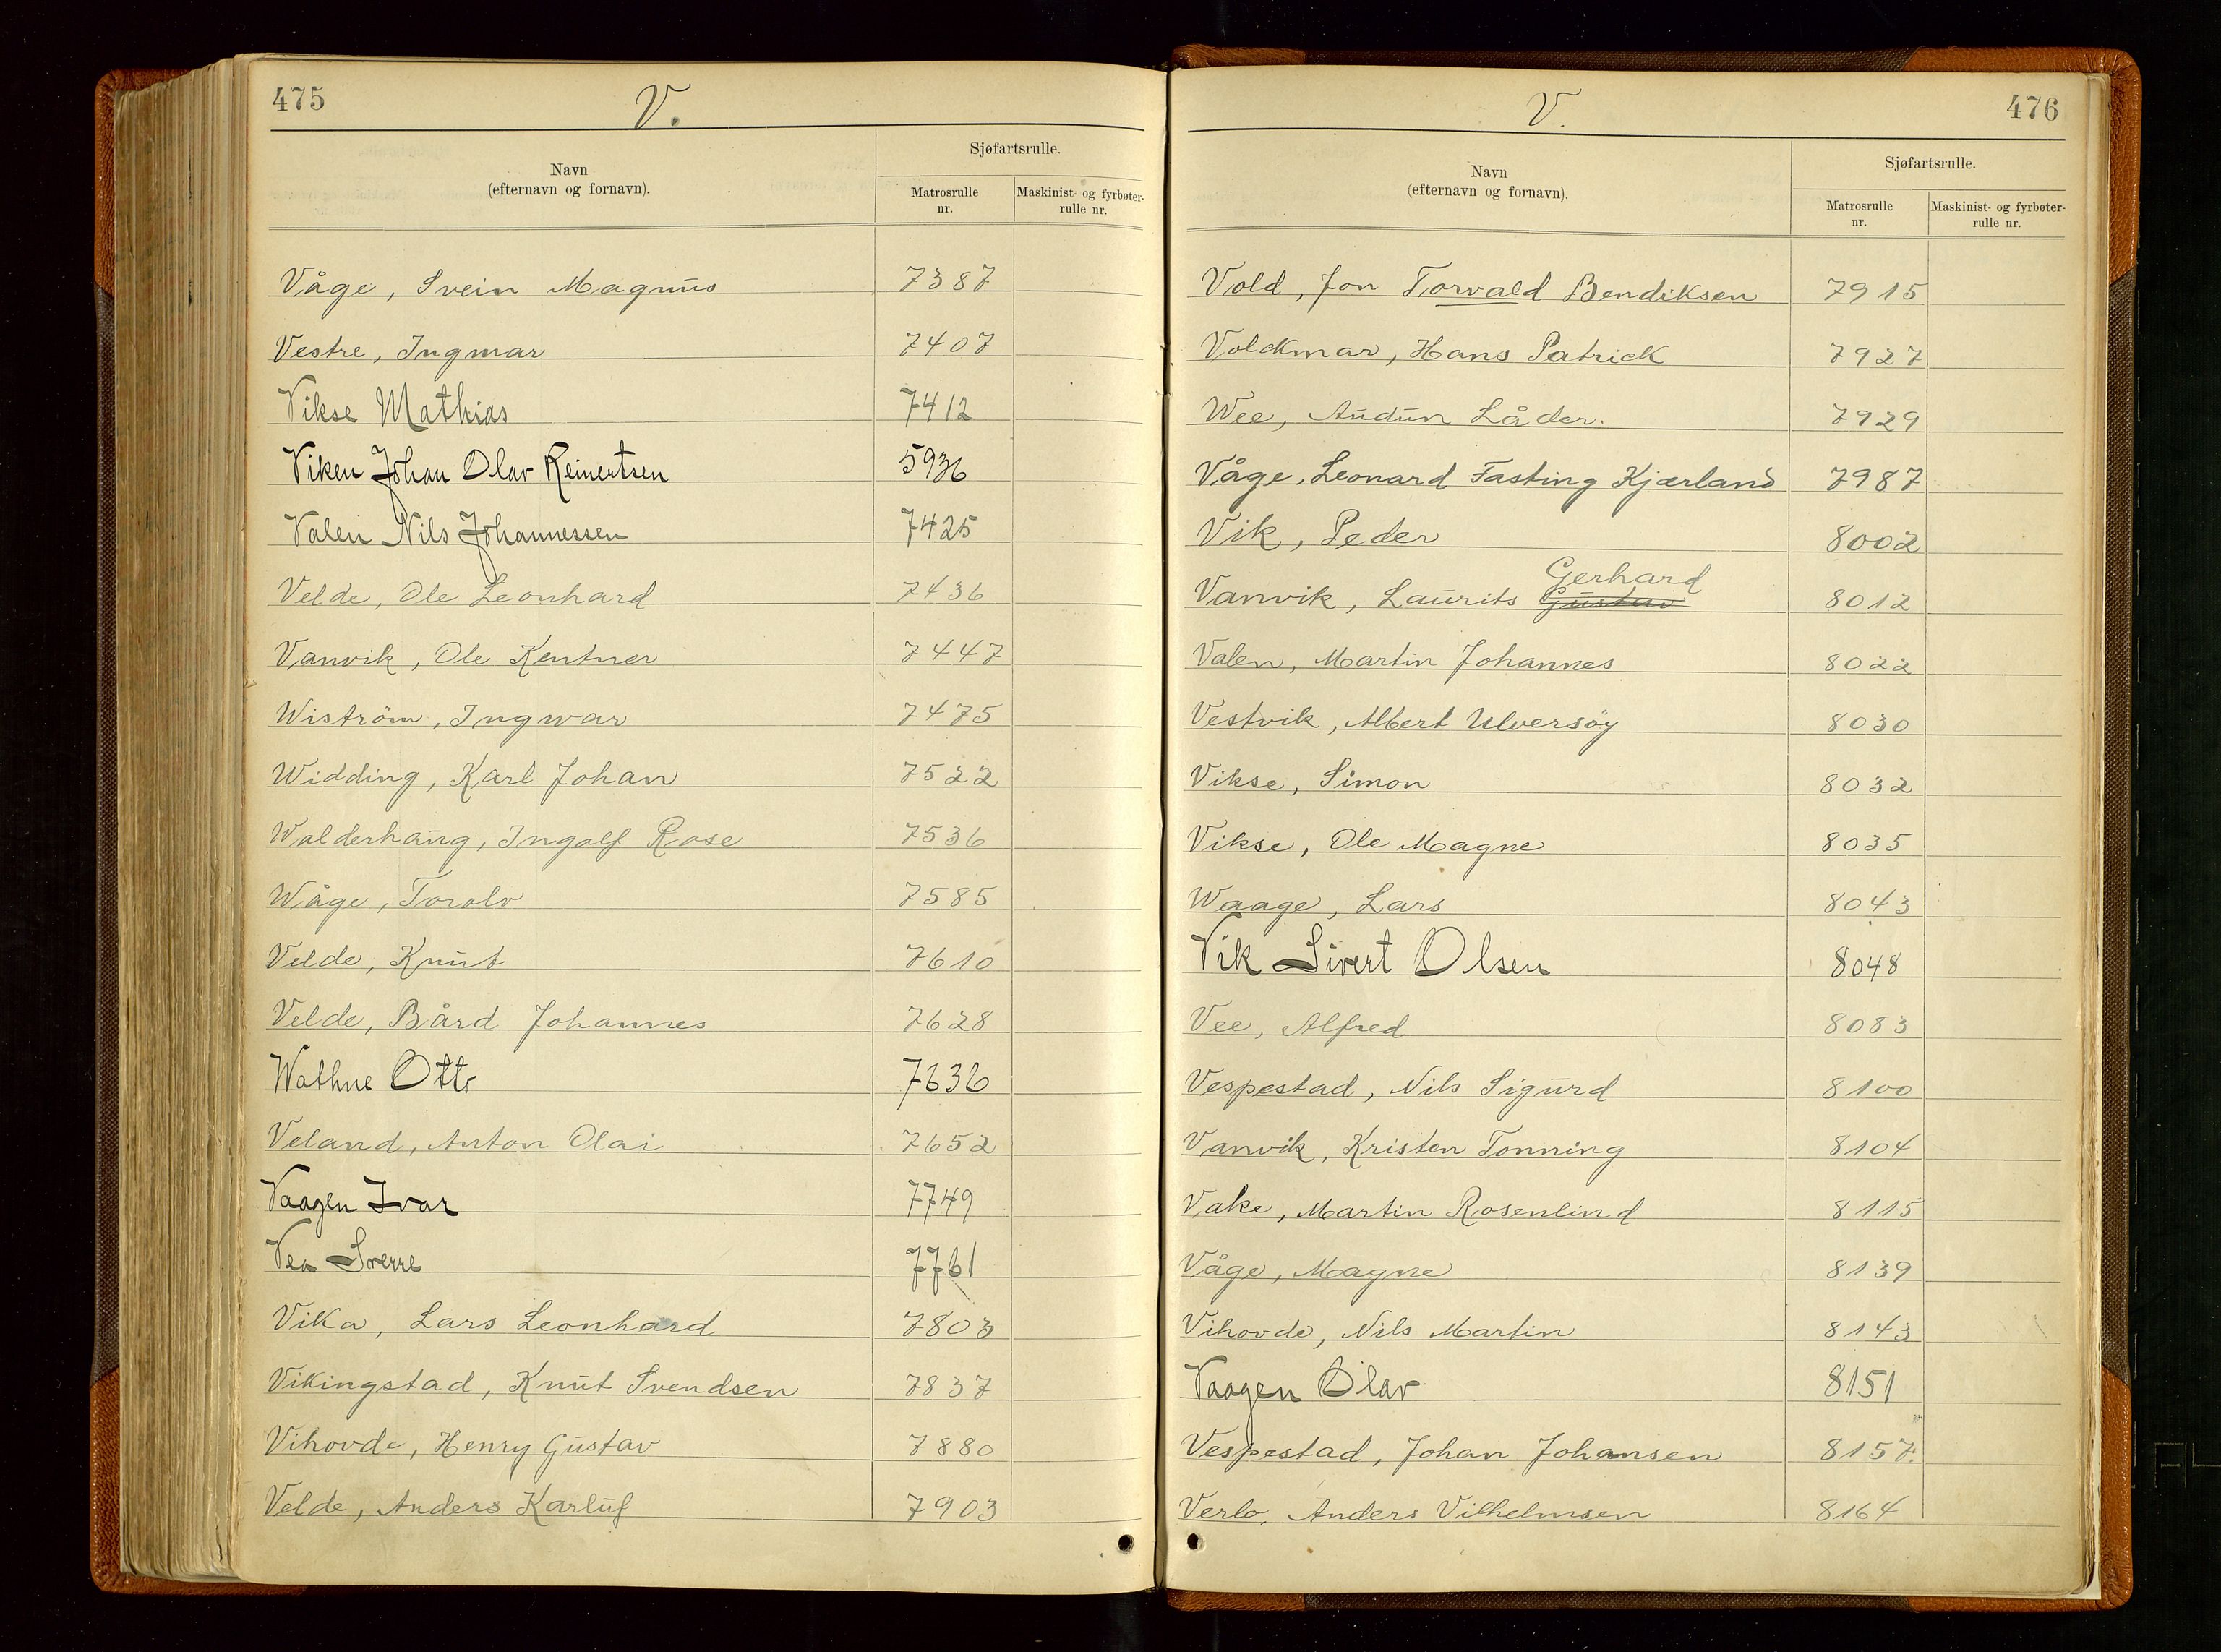 475
V.
Navn
(efternavn og fornavn).
Sjøfartsrulle.
Matrosrulle
nr.
Maskinist- og fyrbøter-
rulle nr.
Våge, Svein Magnus 7387
Vestre, Ingmar 7407
Vikse Mathias 7412
Viken Johan Olav Reinertsen 5936
Valen Nils Johannessen 7425
Velde, Ole Leonhard 7436
Vanvik, Ole Kentner 7447
Wiström, Ingwar 7475
Widding, Karl Johan 7522
Walderhaug, Ingolf Rose 7536
Wåge, Torolv 7585
Velde, Knut 7610
Velde, Bård Johannes 7628
Wathne Otto 7636
Veland, Anton Olai 7652
Vaagen Ivar 7749
Vea Sverre 7761
Vika, Lars Leonhard 7803
Vikingstad, Knut Svendsen 7837
Vihovde, Henry Gustav 7880
Velde, Anders Karluf 7903
476
V.
Navn
(efternavn og fornavn).
Sjøfartsrulle.
Matrosrulle
nr.
Maskinist- og fyrbøter-
rulle nr.
Vold, Jon Torvald Bendiksen 7915
Volckmar, Hans Patrick 7927
Wee, Audun Låder. 7929
Våge, Leonard Fasting Kjærland 7987
Vik, Peder 8002
Gerhard
Vanvik, Laurits Gustav 8012
Valen, Martin Johannes 8022
Vestvik, Albert Ulversöy 8030
Vikse, Simon 8032
Vikse, Ole Magne 8035
Waage, Lars 8043
Vik Sivert Olsen 8048
Vee, Alfred 8083
Vespestad, Nils Sigurd 8100
Vanvik, Kristen Tonning 8104
Vake, Martin Rosenlind 8115
Våge, Magne 8139
Vihovde, Nils Martin 8143
Vaagen Olav 8151
Vespestad, Johan Johansen 8157.
Verlo, Anders Vilhelmsen 8164